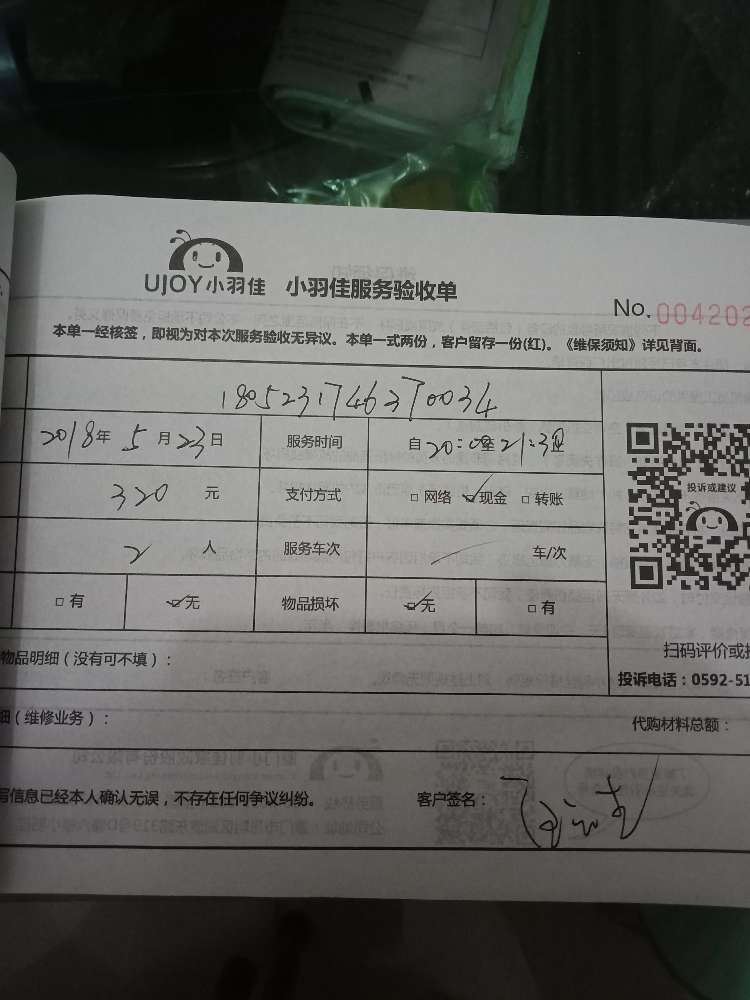 UJOY小羽佳 小羽佳服务验收单
No. 004202
本单一经核签，即视为对本次服务验收无异议。本单一式两份，客户留存一份(红)。《维保须知》详见背面。
1805231746370034
2018年 5月23日 服务时间 自20:00至21:30
320元 支付方式 □网络 ☑现金 □转账
投诉或建议
2人 服务车次 / 车/次
□有 ☑无 物品损坏 ☑无 □有
物品明细（没有可不填）：
扫码评价或
投诉电话：0592-51
细（维修业务）：
代购材料总额：
写信息已经本人确认无误，不存在任何争议纠纷。 客户签名：